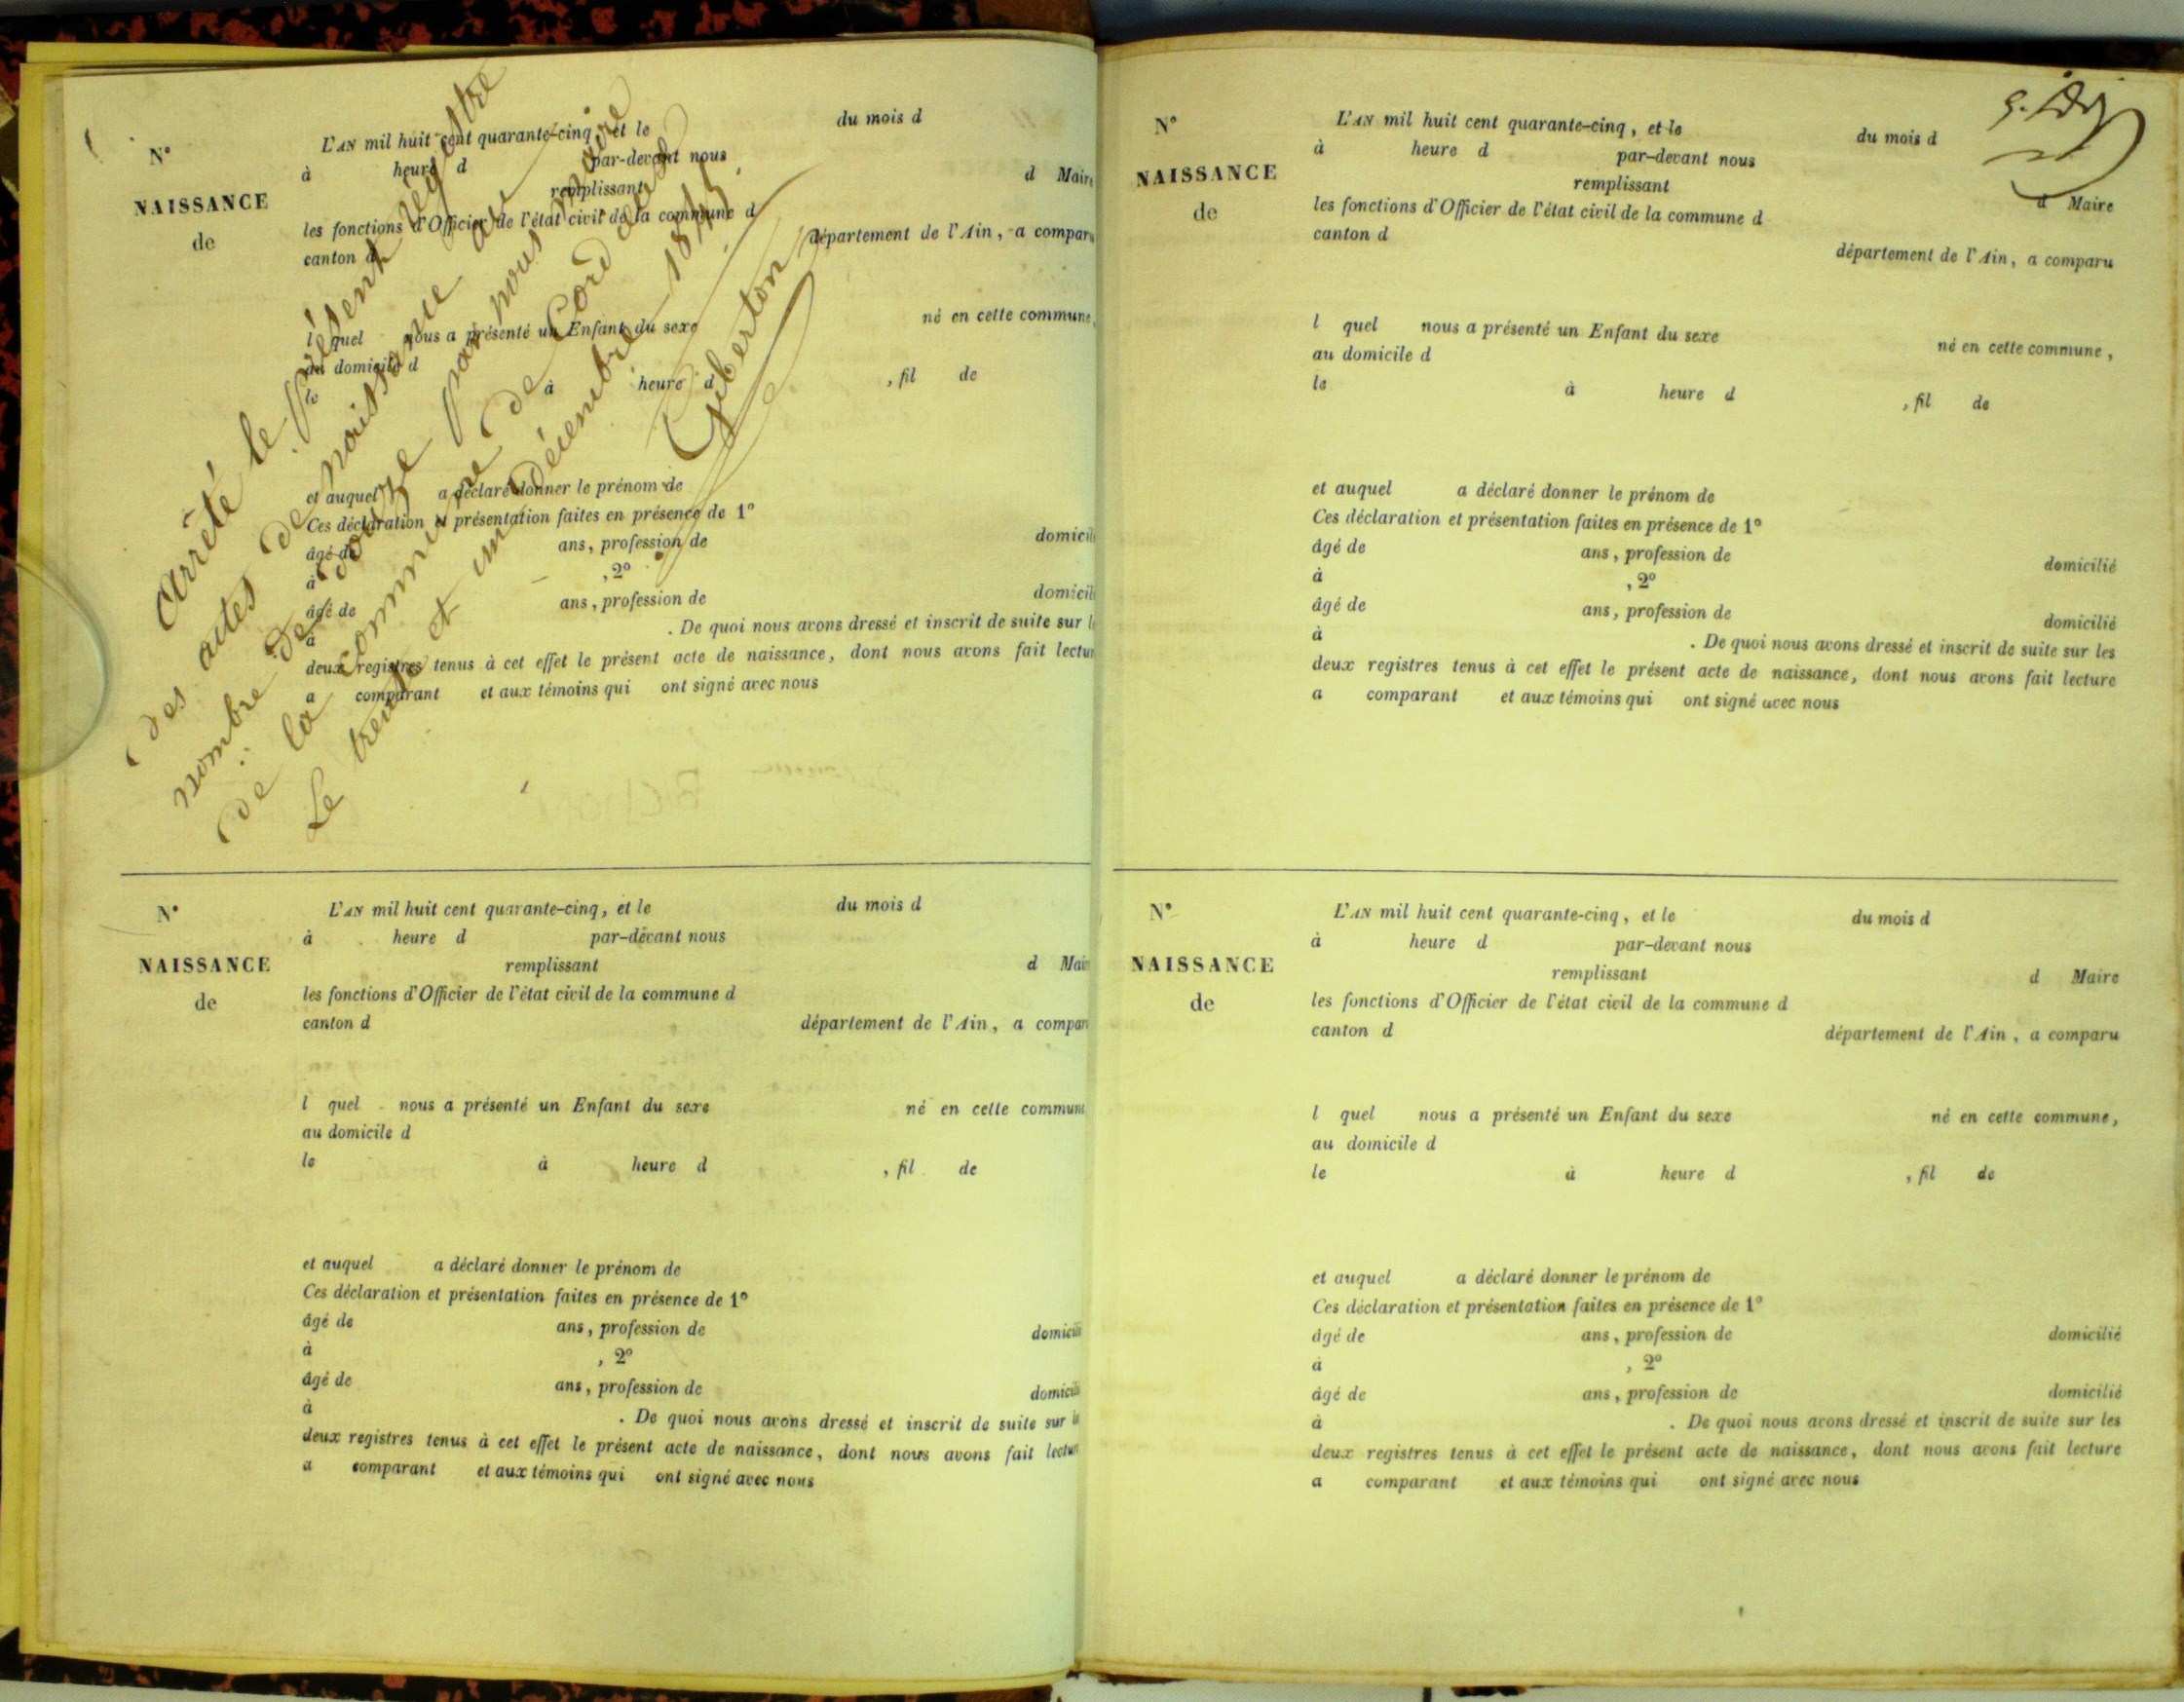 Arrêté le présent régistre
des actes de naissance au
nombre de douze par nous maire
de la commune de Cord
Le trente et un décembre 1845.
Giberton
N°
NAISSANCE
de
L'AN mil huit cent quarante-cinq, et le du mois d
à heure d par-devant nous
remplissant d Maire
les fonctions d'Officier de l'état civil de la commune d
canton d département de l'Ain, a comparu
l quel nous a présenté un Enfant du sexe né en cette commune,
au domicile d
le à heure d , fil de
et auquel a déclaré donner le prénom de
Ces déclaration et présentation faites en présence de 1°
âgé de ans, profession de domicili
à , 2°
âgé de ans, profession de domicili
à . De quoi nous avons dressé et inscrit de suite sur l
deux registres tenus à cet effet le présent acte de naissance, dont nous avons fait lectur
a comparant et aux témoins qui ont signé avec nous
N°
NAISSANCE
de
L'AN mil huit cent quarante-cinq, et le du mois d
à heure d par-devant nous
remplissant d Mair
les fonctions d'Officier de l'état civil de la commune d
canton d département de l'Ain, a compar
l quel nous a présenté un Enfant du sexe né en cette commun
au domicile d
le à heure d , fil de
et auquel a déclaré donner le prénom de
Ces déclaration et présentation faites en présence de 1°
âgé de ans, profession de domicili
à , 2°
âgé de ans, profession de domicili
à . De quoi nous avons dressé et inscrit de suite sur l
deux registres tenus à cet effet le présent acte de naissance, dont nous avons fait lectur
a comparant et aux témoins qui ont signé avec nous
N°
NAISSANCE
de
L'AN mil huit cent quarante-cinq, et le du mois d
à heure d par-devant nous
remplissant d Maire
les fonctions d'Officier de l'état civil de la commune d
canton d département de l'Ain, a comparu
l quel nous a présenté un Enfant du sexe né en cette commune,
au domicile d
le à heure d , fil de
et auquel a déclaré donner le prénom de
Ces déclaration et présentation faites en présence de 1°
âgé de ans, profession de domicilié
à , 2°
âgé de ans, profession de domicilié
à . De quoi nous avons dressé et inscrit de suite sur les
deux registres tenus à cet effet le présent acte de naissance, dont nous avons fait lecture
a comparant et aux témoins qui ont signé avec nous
N°
NAISSANCE
de
L'AN mil huit cent quarante-cinq, et le du mois d
à heure d par-devant nous
remplissant d Maire
les fonctions d'Officier de l'état civil de la commune d
canton d département de l'Ain, a comparu
l quel nous a présenté un Enfant du sexe né en cette commune,
au domicile d
le à heure d , fil de
et auquel a déclaré donner le prénom de
Ces déclaration et présentation faites en présence de 1°
âgé de ans, profession de domicilié
à , 2°
âgé de ans, profession de domicilié
à . De quoi nous avons dressé et inscrit de suite sur les
deux registres tenus à cet effet le présent acte de naissance, dont nous avons fait lecture
a comparant et aux témoins qui ont signé avec nous